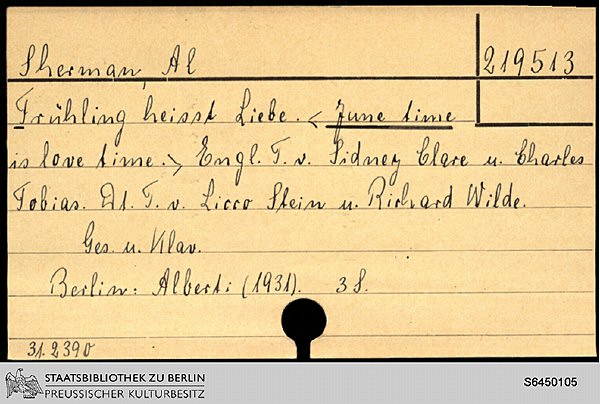 Sherman, Al
219513
Frühling heisst Liebe. < June time
is love time. > Engl. T. v. Sidney Clare u. Charles
Tobias. Dt. T. v. Licco Stein u. Richard Wilde.
Ges. u. Klav.
Berlin: Alberti (1931). 3 S.
31.2390
STAATSBIBLIOTHEK ZU BERLIN
PREUSSISCHER KULTURBESITZ
S6450105